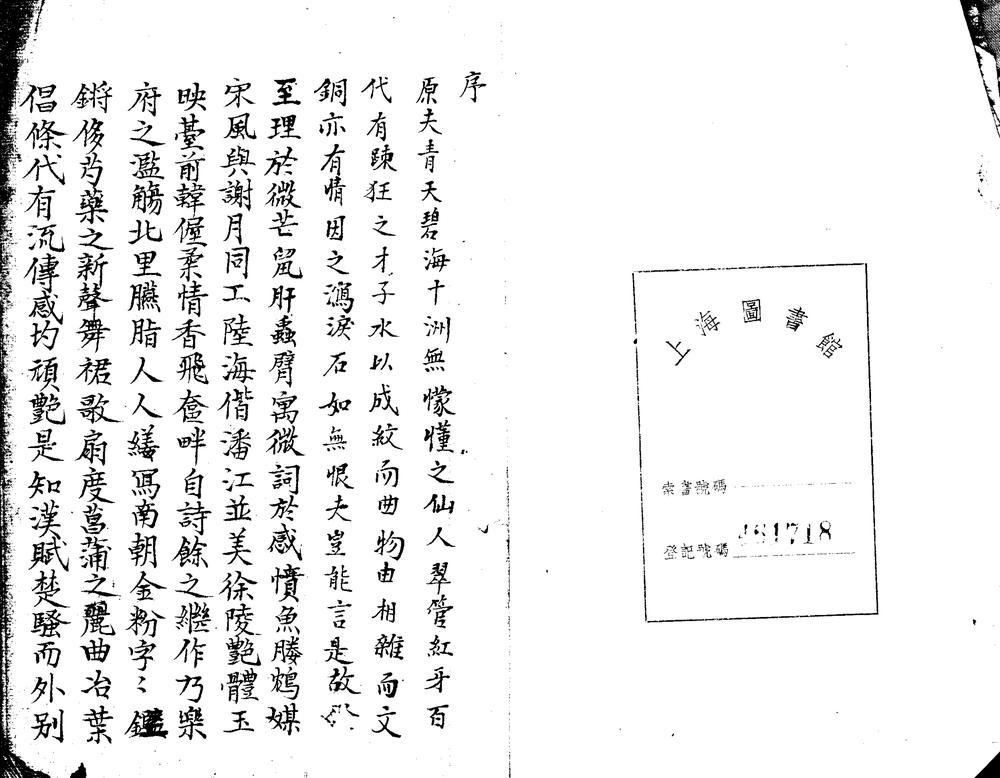 上海圖書館
索書號碼
登記號碼 461718
序
原夫青天碧海十洲無懞懂之仙人翠管紅牙百
代有踈狂之才子水以成紋而曲物由相雜而文
銅亦有情因之瀉淚石如無恨夫豈能言是故
至理於微芒鼠肝蟲臂寓微詞於感憤魚媵鴆媒
宋風與謝月同工陸海偕潘江並美徐陵艷體玉
映臺前韓偓柔情香飛奩畔自詩餘之繼作乃樂
府之濫觴北里臙脂人人繕寫南朝金粉字〻鑑
鏘侈芍藥之新聲舞裙歌扇度菖蒲之麗曲冶葉
倡條代有流傳感均頑艷是知漢賦楚騷而外别